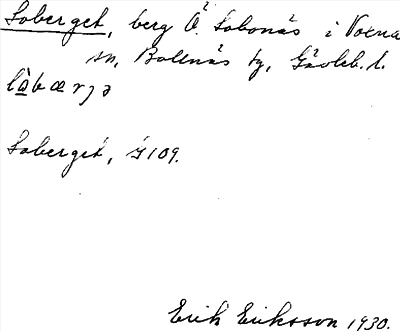 Loberget, berg Ö. Lobonäs i Voxna
sn, Bollnäs tg, Gävleb. l.
lòbærjə
Loberget, G109.
Erik Eriksson 1930.